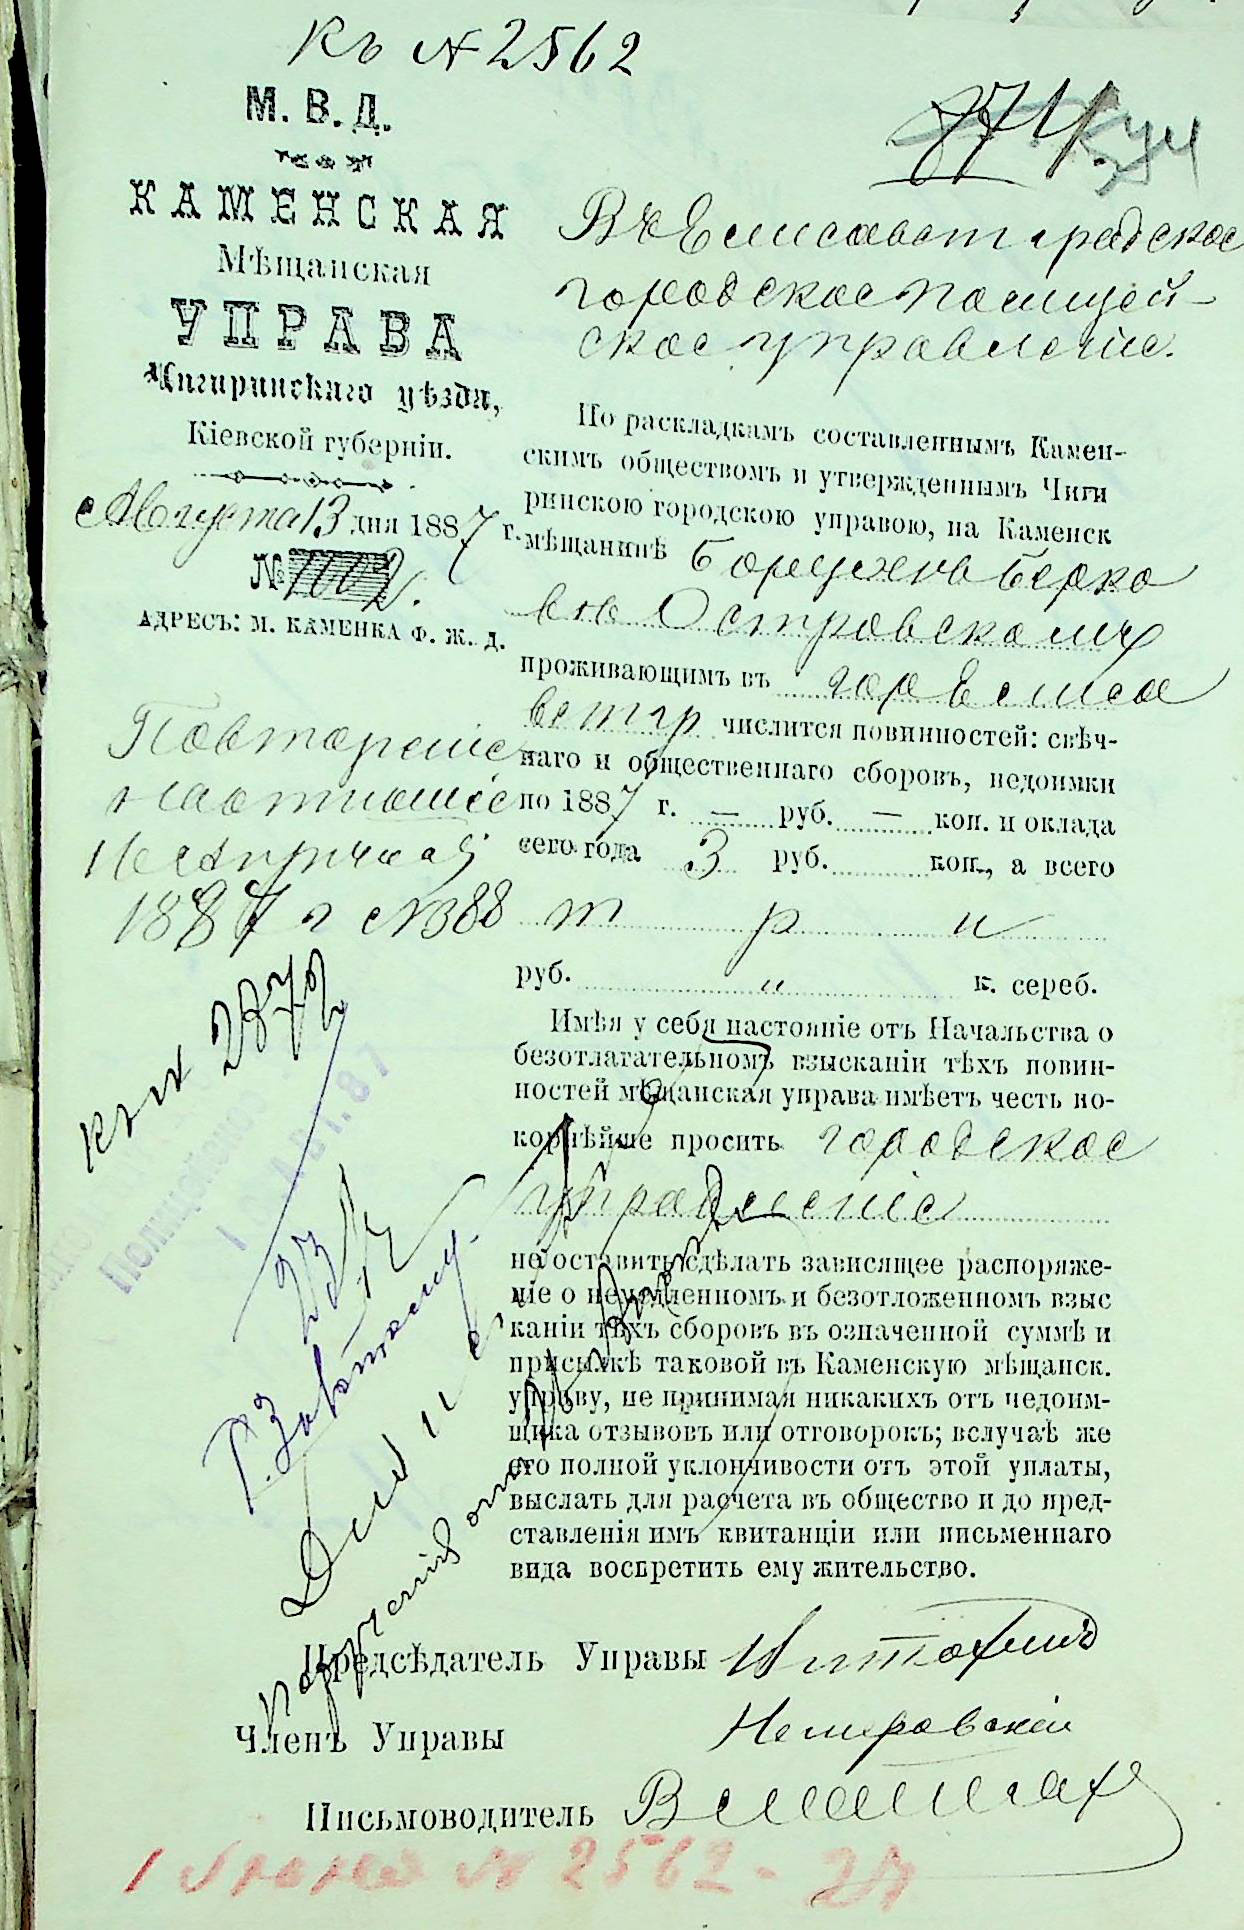 Къ № 2562
М. В. Д.
КАМЕНСКАЯ
Мѣщанская
УПРАВА
Чигиринскаго уѣзда,
Кіевской губерніи.
Августа 13 дня 1887 г.
№ 1002.
АДРЕСЪ: М. КАМЕНКА Ф. Ж. Д.
1887 г № 388
Въ Елисаветградское
городское полицей-
ское управленіе.
По раскладкамъ составленнымъ Камен-
скимъ обществомъ и утвержденнымъ Чиги
ринскою городскою управою, на Каменск
мѣщанинѣ Борухѣ Берко
вѣ Островскому
проживающимъ въ гор Елиса
ветгр числится повинностей: свѣч-
наго и общественнаго сборовъ, недоимки
по 1887 г. — руб. — коп. и оклада
сего года 3 руб. коп., а всего
т р и
руб. „ к. сереб.
Имѣя у себя настояніе отъ Начальства о
безотлагательномъ взысканіи тѣхъ повин-
ностей мѣщанская управа имѣетъ честь по-
корнѣйше просить городское
управленіе
не оставить сдѣлать зависящее распоряже-
ніе о немедленномъ и безотложенномъ взыс
каніи тѣхъ сборовъ въ означенной суммѣ и
присылкѣ таковой въ Каменскую мѣщанск.
управу, не принимая никакихъ отъ недоим-
щика отзывовъ или отговорокъ; вслучаѣ же
его полной уклончивости отъ этой уплаты,
выслать для расчета въ общество и до пред-
ставленія имъ квитанціи или письменнаго
вида воспретить ему жительство.
Предсѣдатель Управы
Членъ Управы Немировскій
Письмоводитель
№ 2562